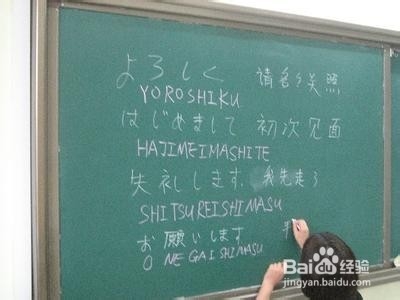 よろしく 请多多关照
YOROSHIKU
はじめまして 初次见面
HAJIMEIMASHITE
失礼します. 我先走了
SHITSUREISHIMASU
お願いします
O NEGAISHIMASU
Baidu 经验
jingyan.baidu.com